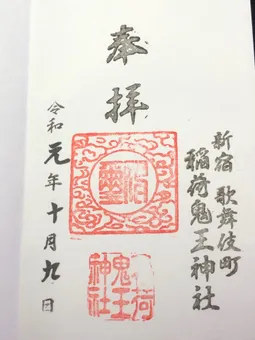 奉拝
新宿 歌舞伎町
稲荷鬼王神社
令和元年十月九日
稲荷
鬼王
神社